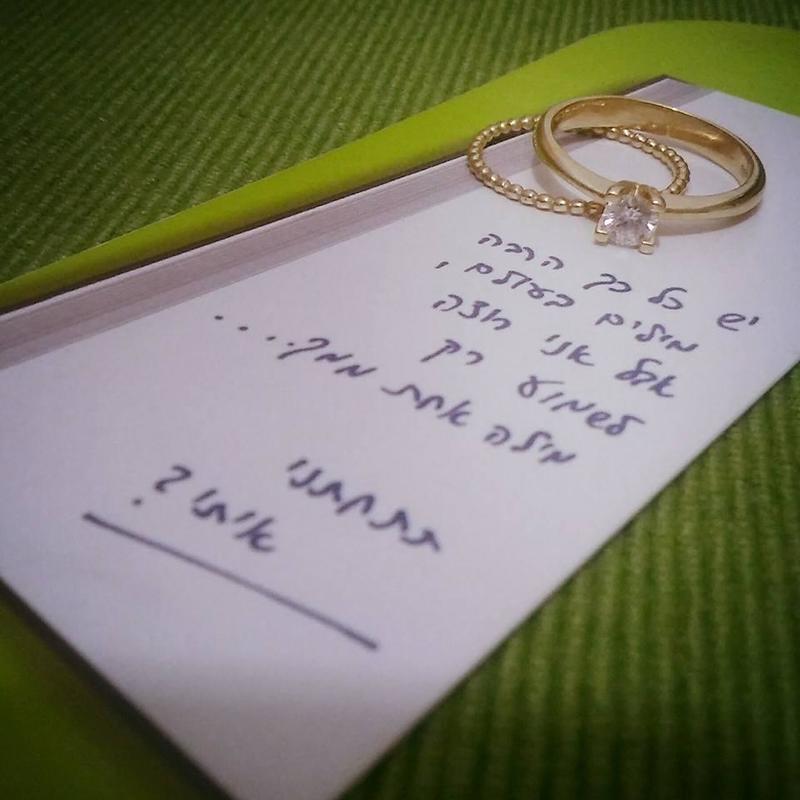 יש כל כך הרבה
מילים בעולם,
אבל אני רוצה
לשמוע רק
מילה אחת ממך....
תתחתני
איתי?